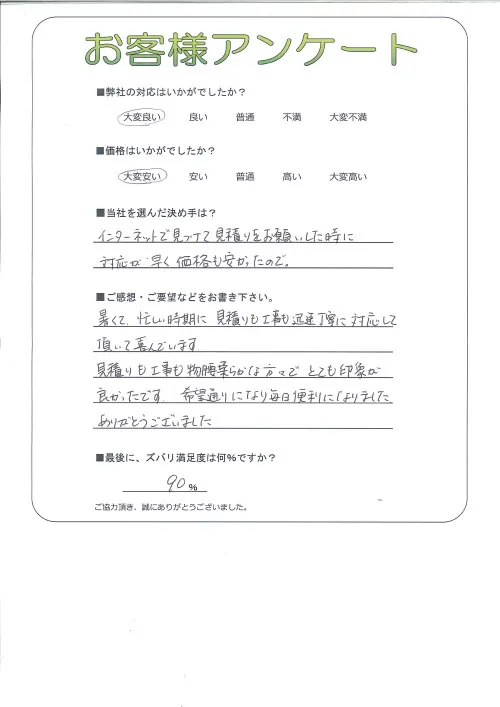 お客様アンケート
■弊社の対応はいかがでしたか？
大変良い 良い 普通 不満 大変不満
■価格はいかがでしたか？
大変安い 安い 普通 高い 大変高い
■当社を選んだ決め手は？
インターネットで見つけて見積りをお願いした時に
対応が早く価格も安かったので。
■ご感想・ご要望などをお書き下さい。
暑くて、忙しい時期に見積りも工事も迅速丁寧に対応して
頂いて喜んでいます。
見積りも工事も物腰柔らかな方々でとても印象が
良かったです。希望通りになり毎日便利になりました
ありがとうございました
■最後に、ズバリ満足度は何％ですか？
90％
ご協力頂き、誠にありがとうございました。